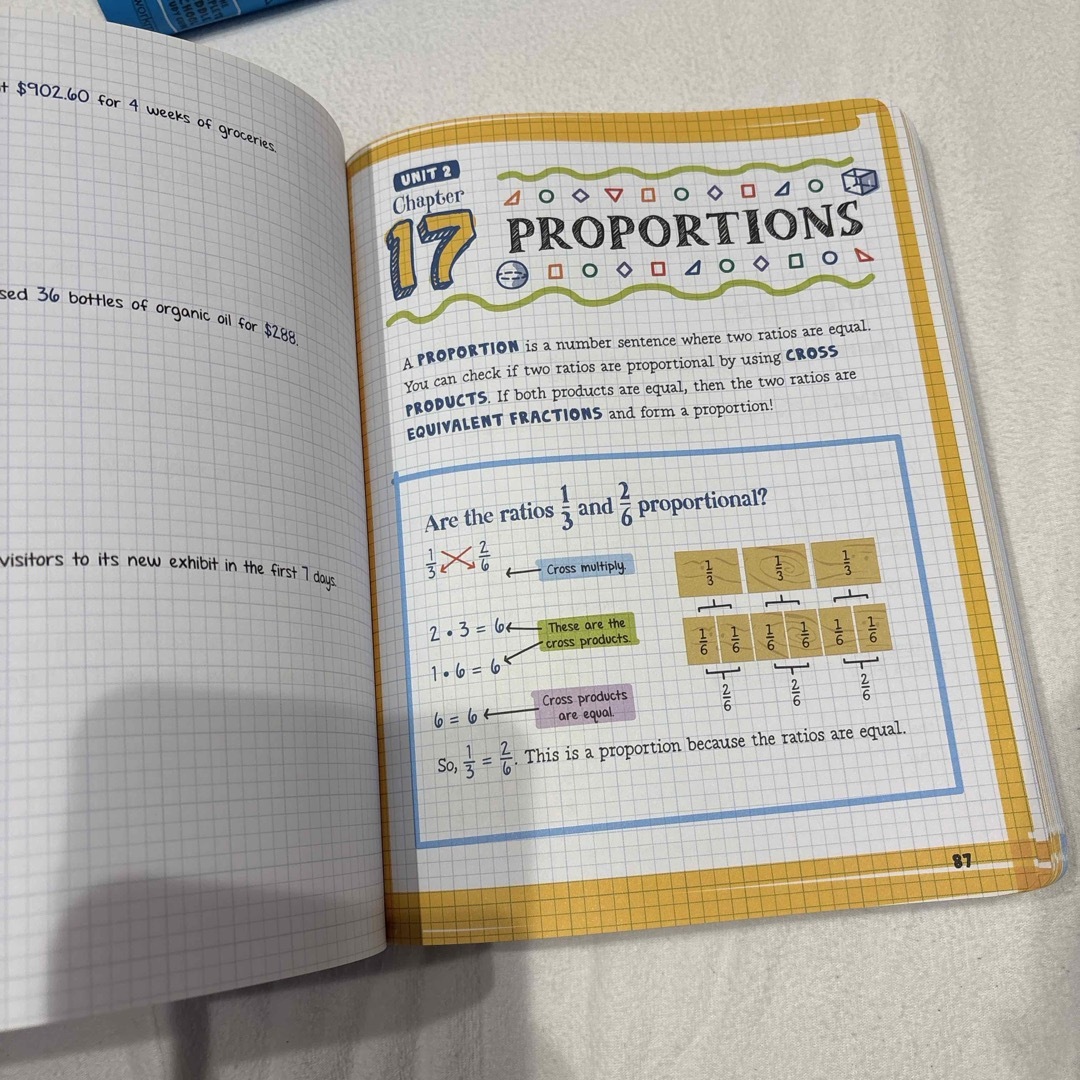 $902.60 for 4 weeks of groceries.
36 bottles of organic oil for $288.
visitors to its new exhibit in the first 7 days.
UNIT 2
Chapter
17
PROPORTIONS
A PROPORTION is a number sentence where two ratios are equal.
You can check if two ratios are proportional by using CROSS
PRODUCTS. If both products are equal, then the two ratios are
EQUIVALENT FRACTIONS and form a proportion!
Are the ratios 1/3 and 2/6 proportional?
1/3 2/6
Cross multiply.
2 • 3 = 6
1 • 6 = 6
These are the
cross products.
6 = 6
Cross products
are equal.
1/3 1/3 1/3
1/6 1/6 1/6 1/6 1/6 1/6
2/6 2/6 2/6
So, 1/3 = 2/6. This is a proportion because the ratios are equal.
87